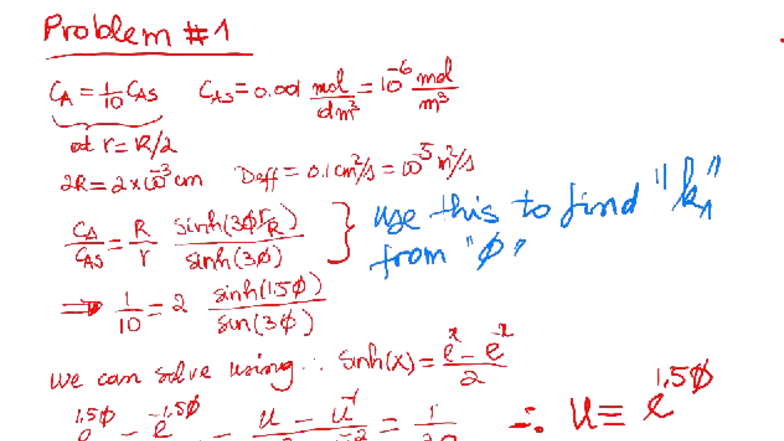 Problem #1
C_A = 1/10 C_AS    C_AS = 0.001 mol/dm³ = 10⁻⁶ mol/m³
at r = R/2
2R = 2 × 10⁻³ cm    Deff = 0.1 cm²/s = 10⁻⁵ m²/s
C_A/C_AS = R/r sinh(3ϕ r/R)/sinh(3ϕ) } use this to find "k₁" from "ϕ"
⟹ 1/10 = 2 sinh(1.5ϕ)/sin(3ϕ)
We can solve using ∴ sinh(x) = (eˣ − e⁻ˣ)/2
e^1.5ϕ − e^−1.5ϕ = u − u⁻¹ = 1/20 ∴ u ≡ e^1.5ϕ